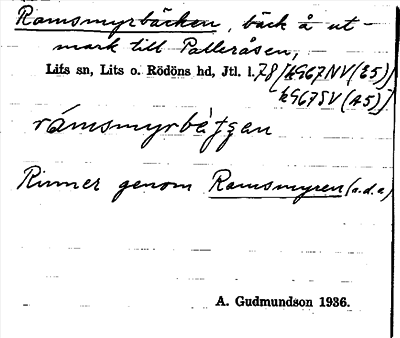 Ramsmyrbäcken, bäck å ut-
mark till Palleråsen,
Lits sn, Lits o. Rödöns hd, Jtl. l. 78 [k967NV(E5)]
k967SV(A5)]
Rinner genom Ramsmyren (s.d.a)
A. Gudmundson 1936.